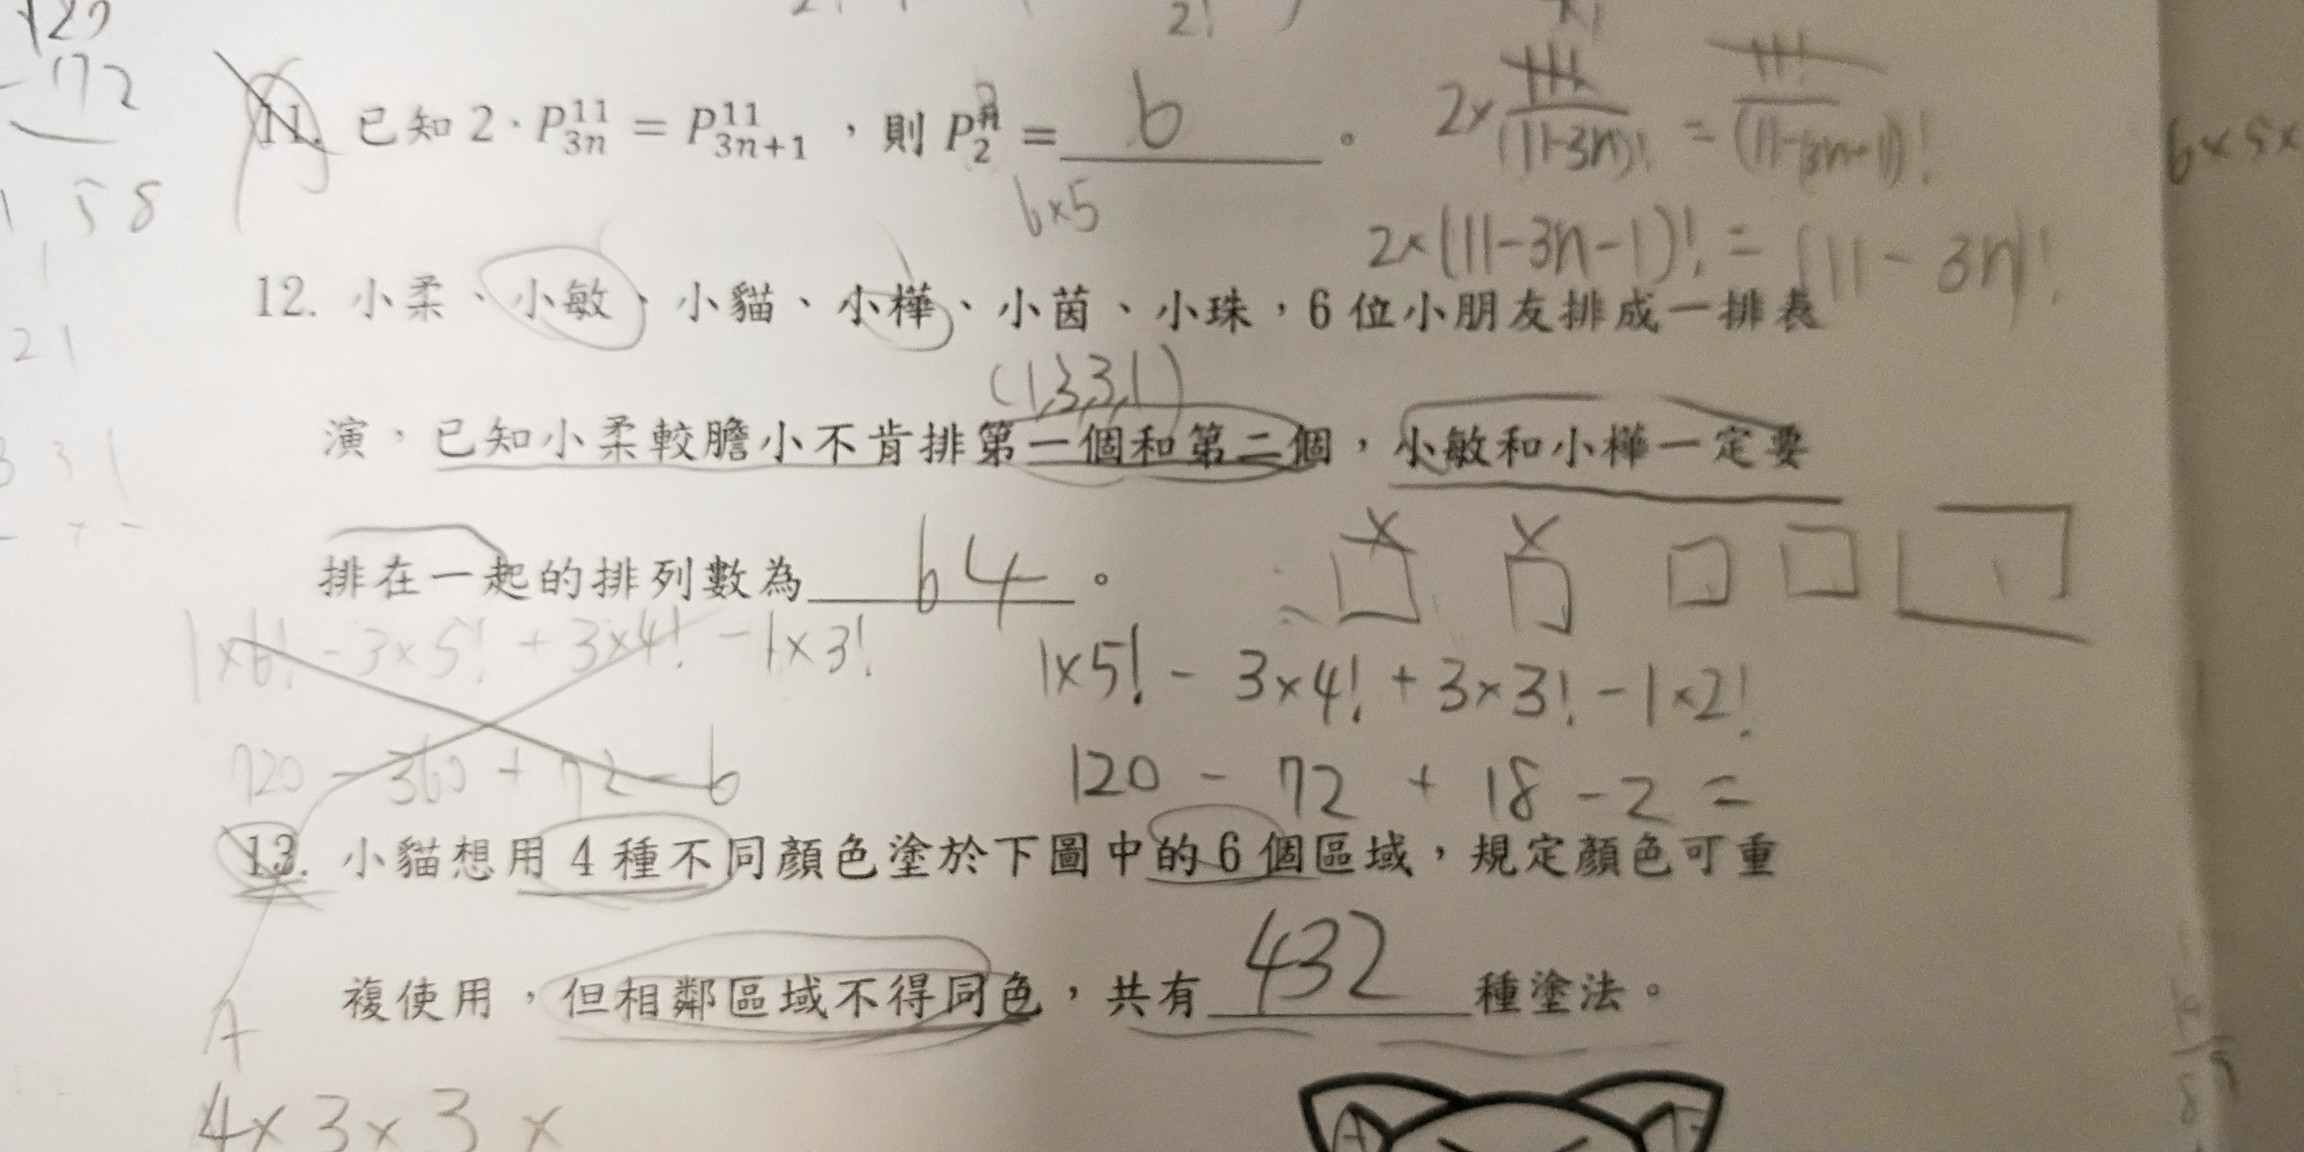 11. 已知 2 · P₃ₙ¹¹ = P₃ₙ₊₁¹¹ ，則 P₂ⁿ = 6 。
6×5
2×(11-3n-1)! = (11-3n)!
12. 小柔、小敏、小貓、小樺、小茵、小珠，6 位小朋友排成一排表
(1,3,3,1)
演，已知小柔較膽小不肯排第一個和第二個，小敏和小樺一定要
排在一起的排列數為 64 。
1×6! - 3×5! + 3×4! - 1×3!
1×5! - 3×4! + 3×3! - 1×2!
720 - 360 + 72 - 6
120 - 72 + 18 - 2 =
13. 小貓想用 4 種不同顏色塗於下圖中的 6 個區域，規定顏色可重
複使用，但相鄰區域不得同色，共有 432 種塗法。
A
4×3×3×